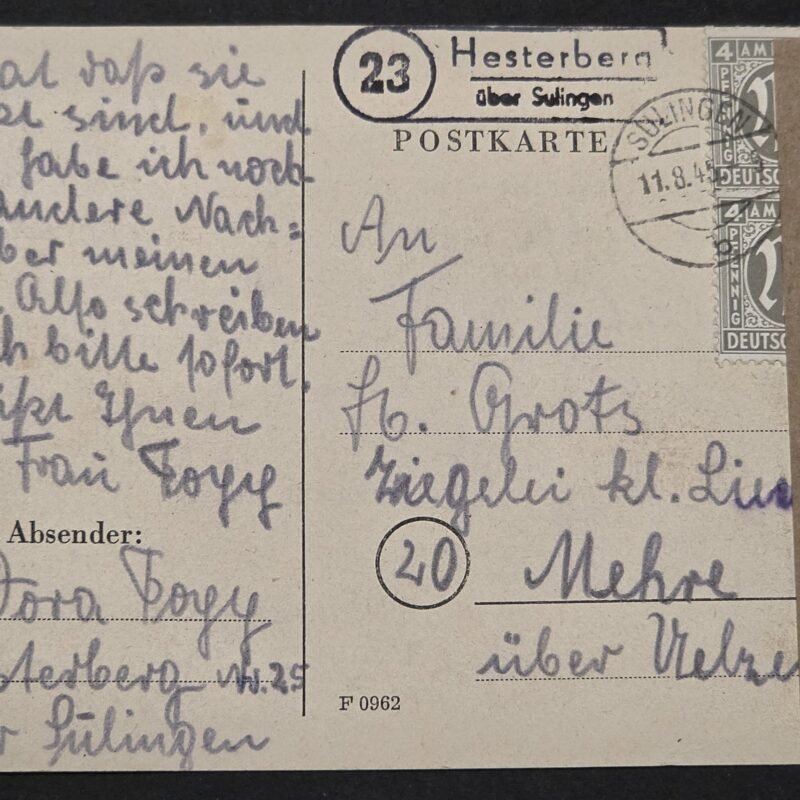 at daß sie
zt sind, und
habe ich noch
andere Nach=
ber meinen
. Also schreiben
h bitte sofort.
üßt Ihnen
Frau
Absender:
Dora
sterberg Nr. 25
r Sulingen
23
Hesterberg
über Sulingen
POSTKARTE
SULINGEN
11.8.45
b
4 AM
PFENNIG
DEUTSC
4 AM
PFENNIG
DEUTSC
An
Familie
H. Grotz
Ziegelei kl. Lie
20
Mehre
über Uelze
F 0962